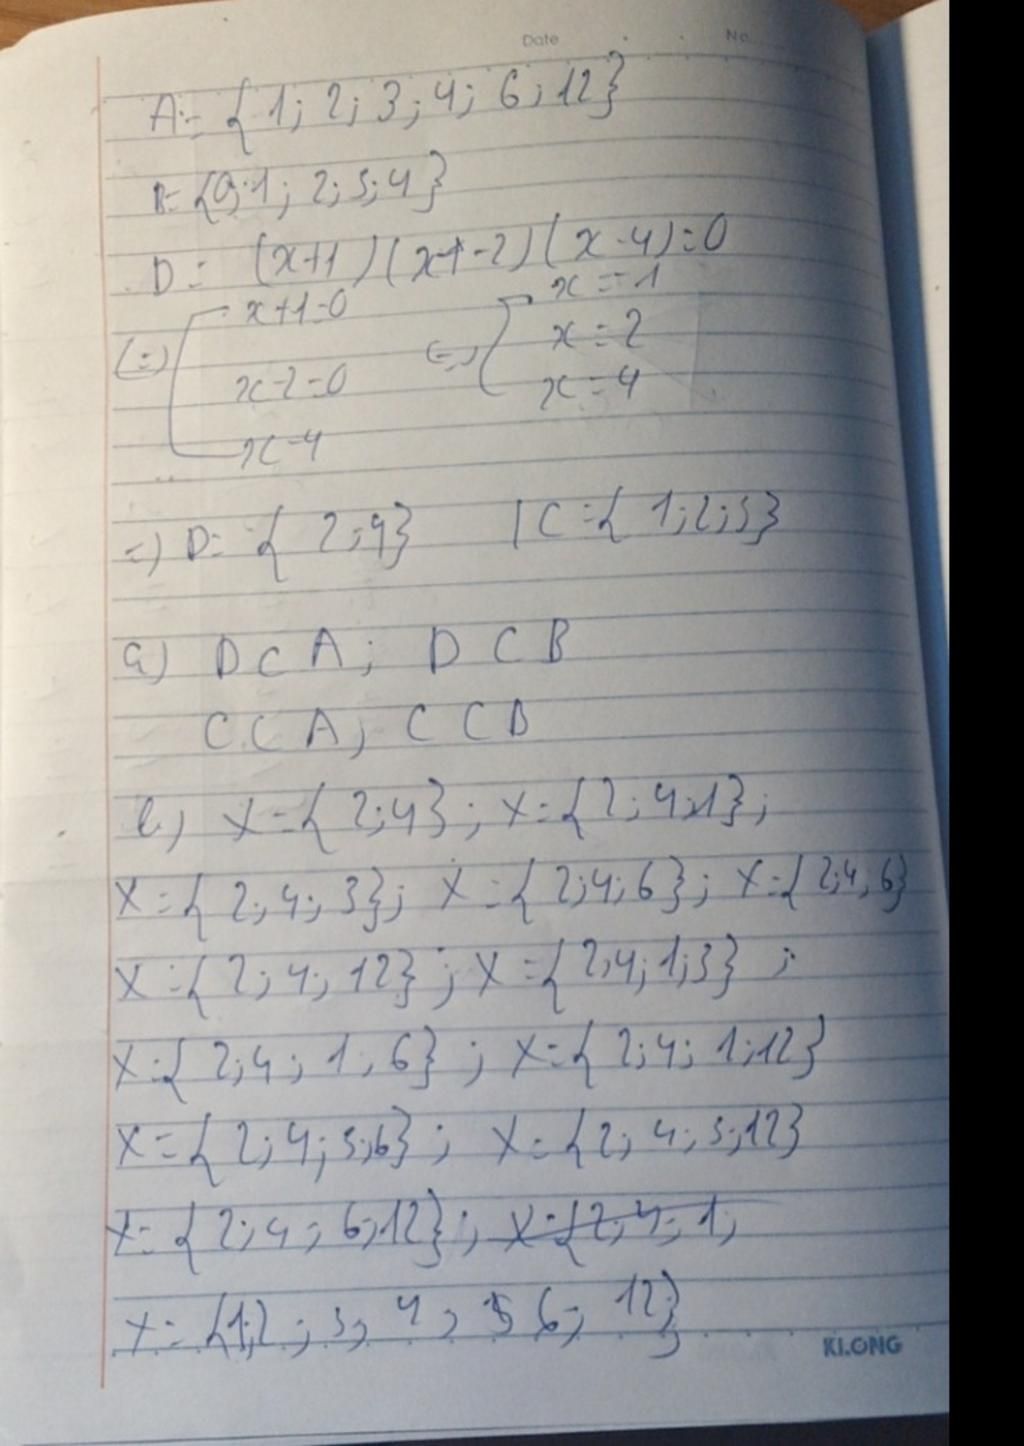 Date No
A = { 1; 2; 3; 4; 6; 12}
B= {0;1; 2; 3; 4}
D= (x+1)(x-2)(x-4)=0
x+1=0 x=-1
(=) x-2=0 (=) x=2
x-4 x=4
=) D= { 2;4} | C={ 1;2;3}
a) D ⊂ A; D ⊂ B
C ⊂ A; C ⊂ B
b) X={ 2;4}; X={2; 4;1};
X={ 2; 4; 3}; X={2;4;6}; X={2;4;6}
X={2; 4; 12}; X={2;4;1;3};
X={ 2;4; 1; 6}; X={2;4; 1;12}
X={2; 4; 3;6}; X={2; 4; 3;12}
X={2;4; 6;12}; X={2;4; 1;
X={1;2; 3; 4; 6; 12}
KLONG